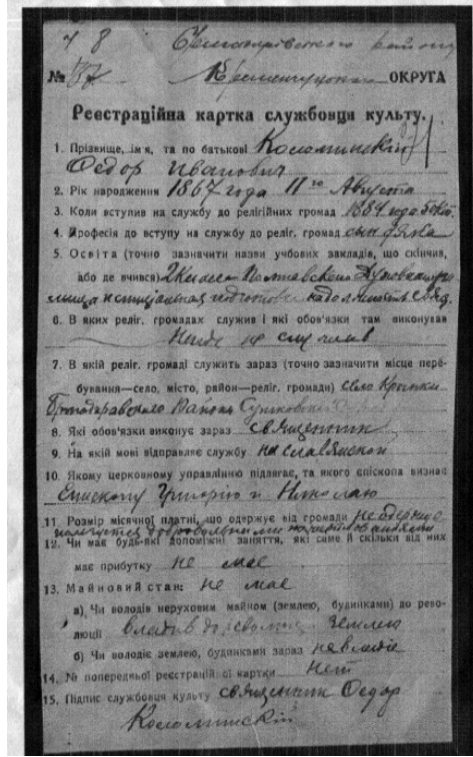 7 8 району
№ ОКРУГА
Реєстраційна картка службовця культу.
1. Прізвище, ім'я, та по батькові Коломинский
Федор Иванович
2. Рік народження 1867 года 11го Августа
3. Коли вступив на службу до релігійних громад 1884 года
4. Професія до вступу на службу до реліг. громад сын дьяка
5. Освіта (точно зазначити назви учбових закладів, що скінчив,
або де вчився) 2 класса Полтавского Духовного учи-
лища
6. В яких реліг. громадах служив і які обов'язки там виконував
не служил
7. В якій реліг. громаді служить зараз (точно зазначити місце пере-
бування—село, місто, район—реліг. громади) село
8. Які обов'язки виконує зараз священник
9. На якій мові відправляє службу на славянском
10. Якому церковному управлінню підлягає, та якого єпископа визнає
Епископу Григорію и Николаю
11. Розмір місячної платні, що одержує від громади не
добровольными
12. Чи має будь-які допоміжні заняття, які саме й скільки від них
має прибутку не має
13. Майновий стан: не має
а) Чи володів нерухомим майном (землею, будинками) до рево-
люції землею
б) Чи володіє землею, будинками зараз не владіє
14. № попередньої реєстраційної картки нет
15. Підпис службовця культу священник Федор
Коломинский